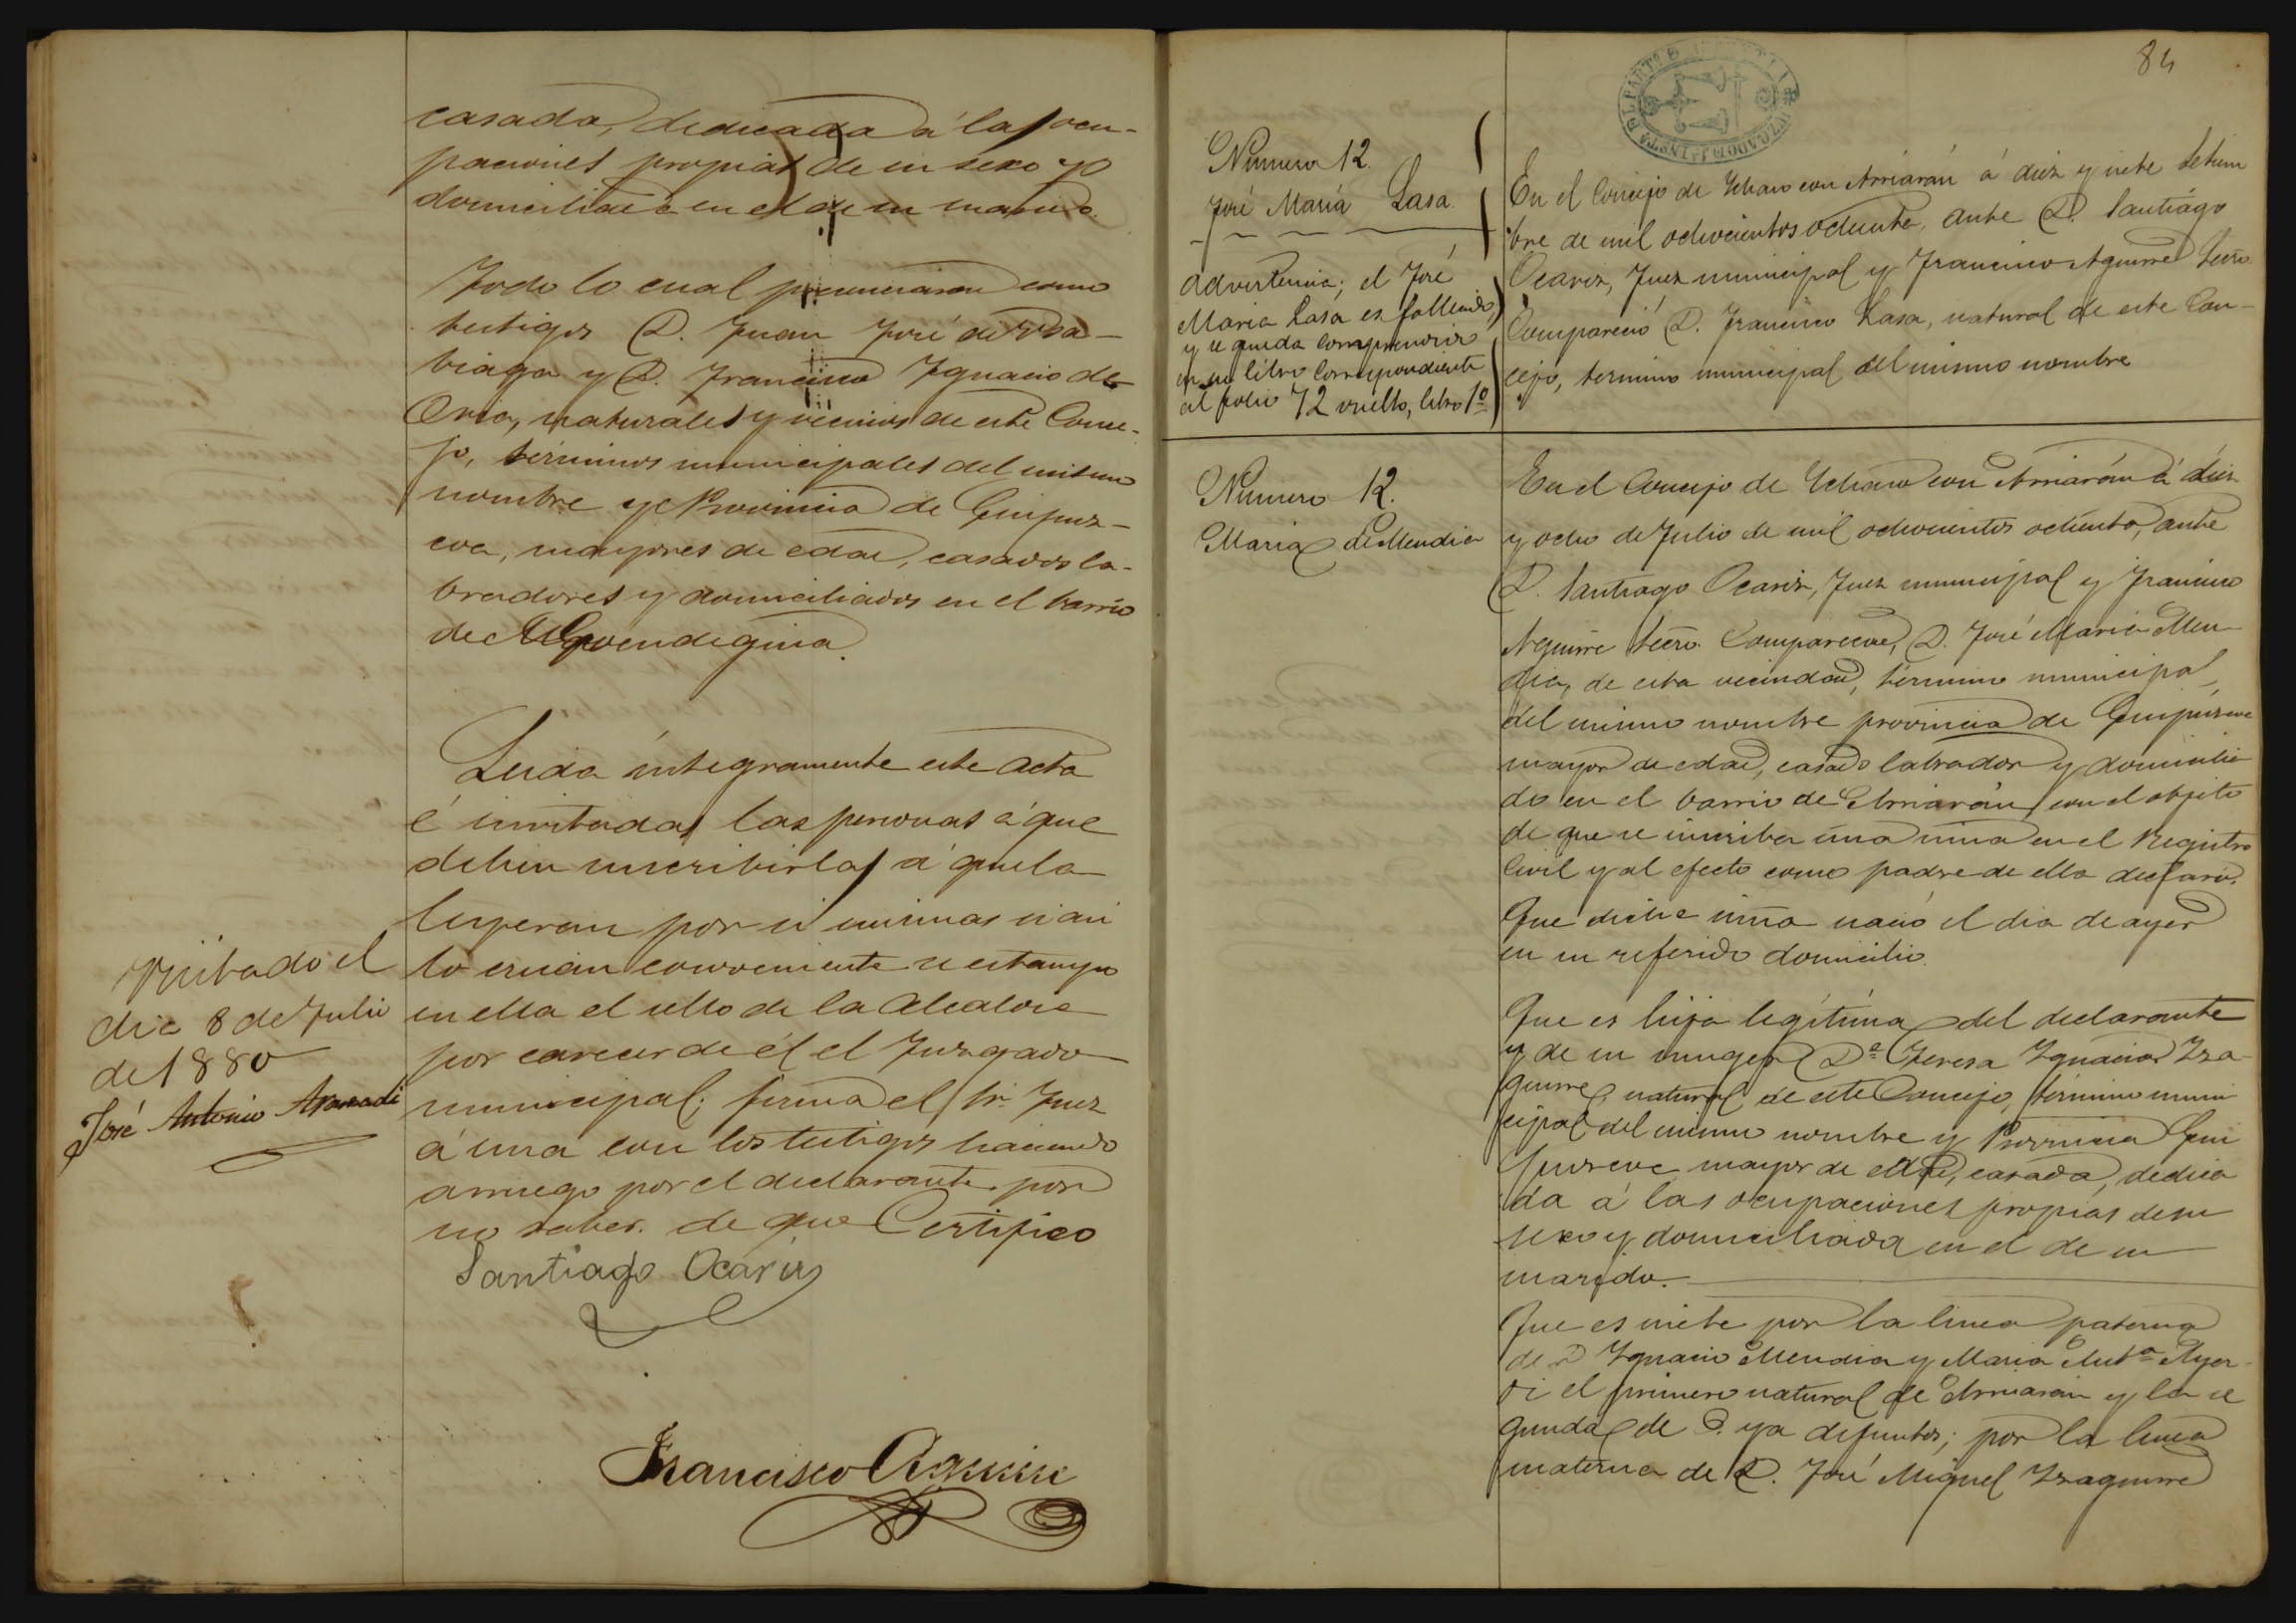 casada, dedicada á las ocu-
paciones propias de su sexo y
domiciliada en el de su marido.
Todo lo cual presenciaron como
testigos D. Juan José de
y D. Francisco Ignacio de
Oria, naturales y vecinos de este Conce-
jo, términos municipales del mismo
nombre y Provincia de Guipuz-
coa, mayores de edad, casados la-
bradores y domiciliados en el barrio
de
Leida íntegramente este acta
é invitadas las personas á que
deben suscribirla á que la
leyeran por si mismas si asi
lo creian conveniente se estampo
en ella el sello de la Alcaldia
por carecer de él el Juzgado
municipal; firma el Sr. Juez
á una con los testigos haciendo
arruego por el declarante por
no saber. de que Certifico
Santiago Ocariz
Francisco Aguirre
Visitado el
dia 8 de Julio
de 1880
José Antonio Aramadi
84
Número 12.
José María Lasa.
Advertencia; el José
Maria Lasa es fallecido,
y se queda comprendido
en su libro correspondiente
al folio 72 vuelto, libro 1º
En el Concejo de Ichaso con Arriarán á diez y siete Setiem
bre de mil ochocientos ochenta, ante D. Santiágo
Ocariz, Juez municipal y Francisco Aguirre Secro.
Compareció D. Francisco Lasa, natural de este Con-
cejo, termino municipal del mismo nombre
Número 12.
Maria de Mendia
En el Concejo de Ichaso con Arriarán á diez
y ocho de Julio de mil ochocientos ochenta, ante
D. Santiago Ocariz, Juez municipal y Francisco
Aguirre Secro. Comparecue, D. José Maria Men
dia, de esta vecindad, término municipal
del mismo nombre provincia de Guipuzcoa
mayor de edad, casado labrador y domicilia
do en el barrio de Arriarán, con el objeto
de que se inscriba una niña en el Registro
Civil y al efecto como padre de ella declaró.
Que dicha niña nació el dia de ayer
en su referido domicilio.
Que es hija legítima del declarante
y de su muger Dª Teresa Ignacia Iza
guirre natural de este Concejo, término muni
cipal del mismo nombre y Provincia Gui
puzcoa mayor de edad, casada, dedica
da á las ocupaciones propias de su
sexo y domiciliada en el de su
marido.
Que es nieta por la linea paterna
de D Ignacio Mendia y Maria Antª Ayer
di el primero natural de Arriarán y la se
gunda de ya difuntos; por la linea
materna de D. José Miguel Izaguirre